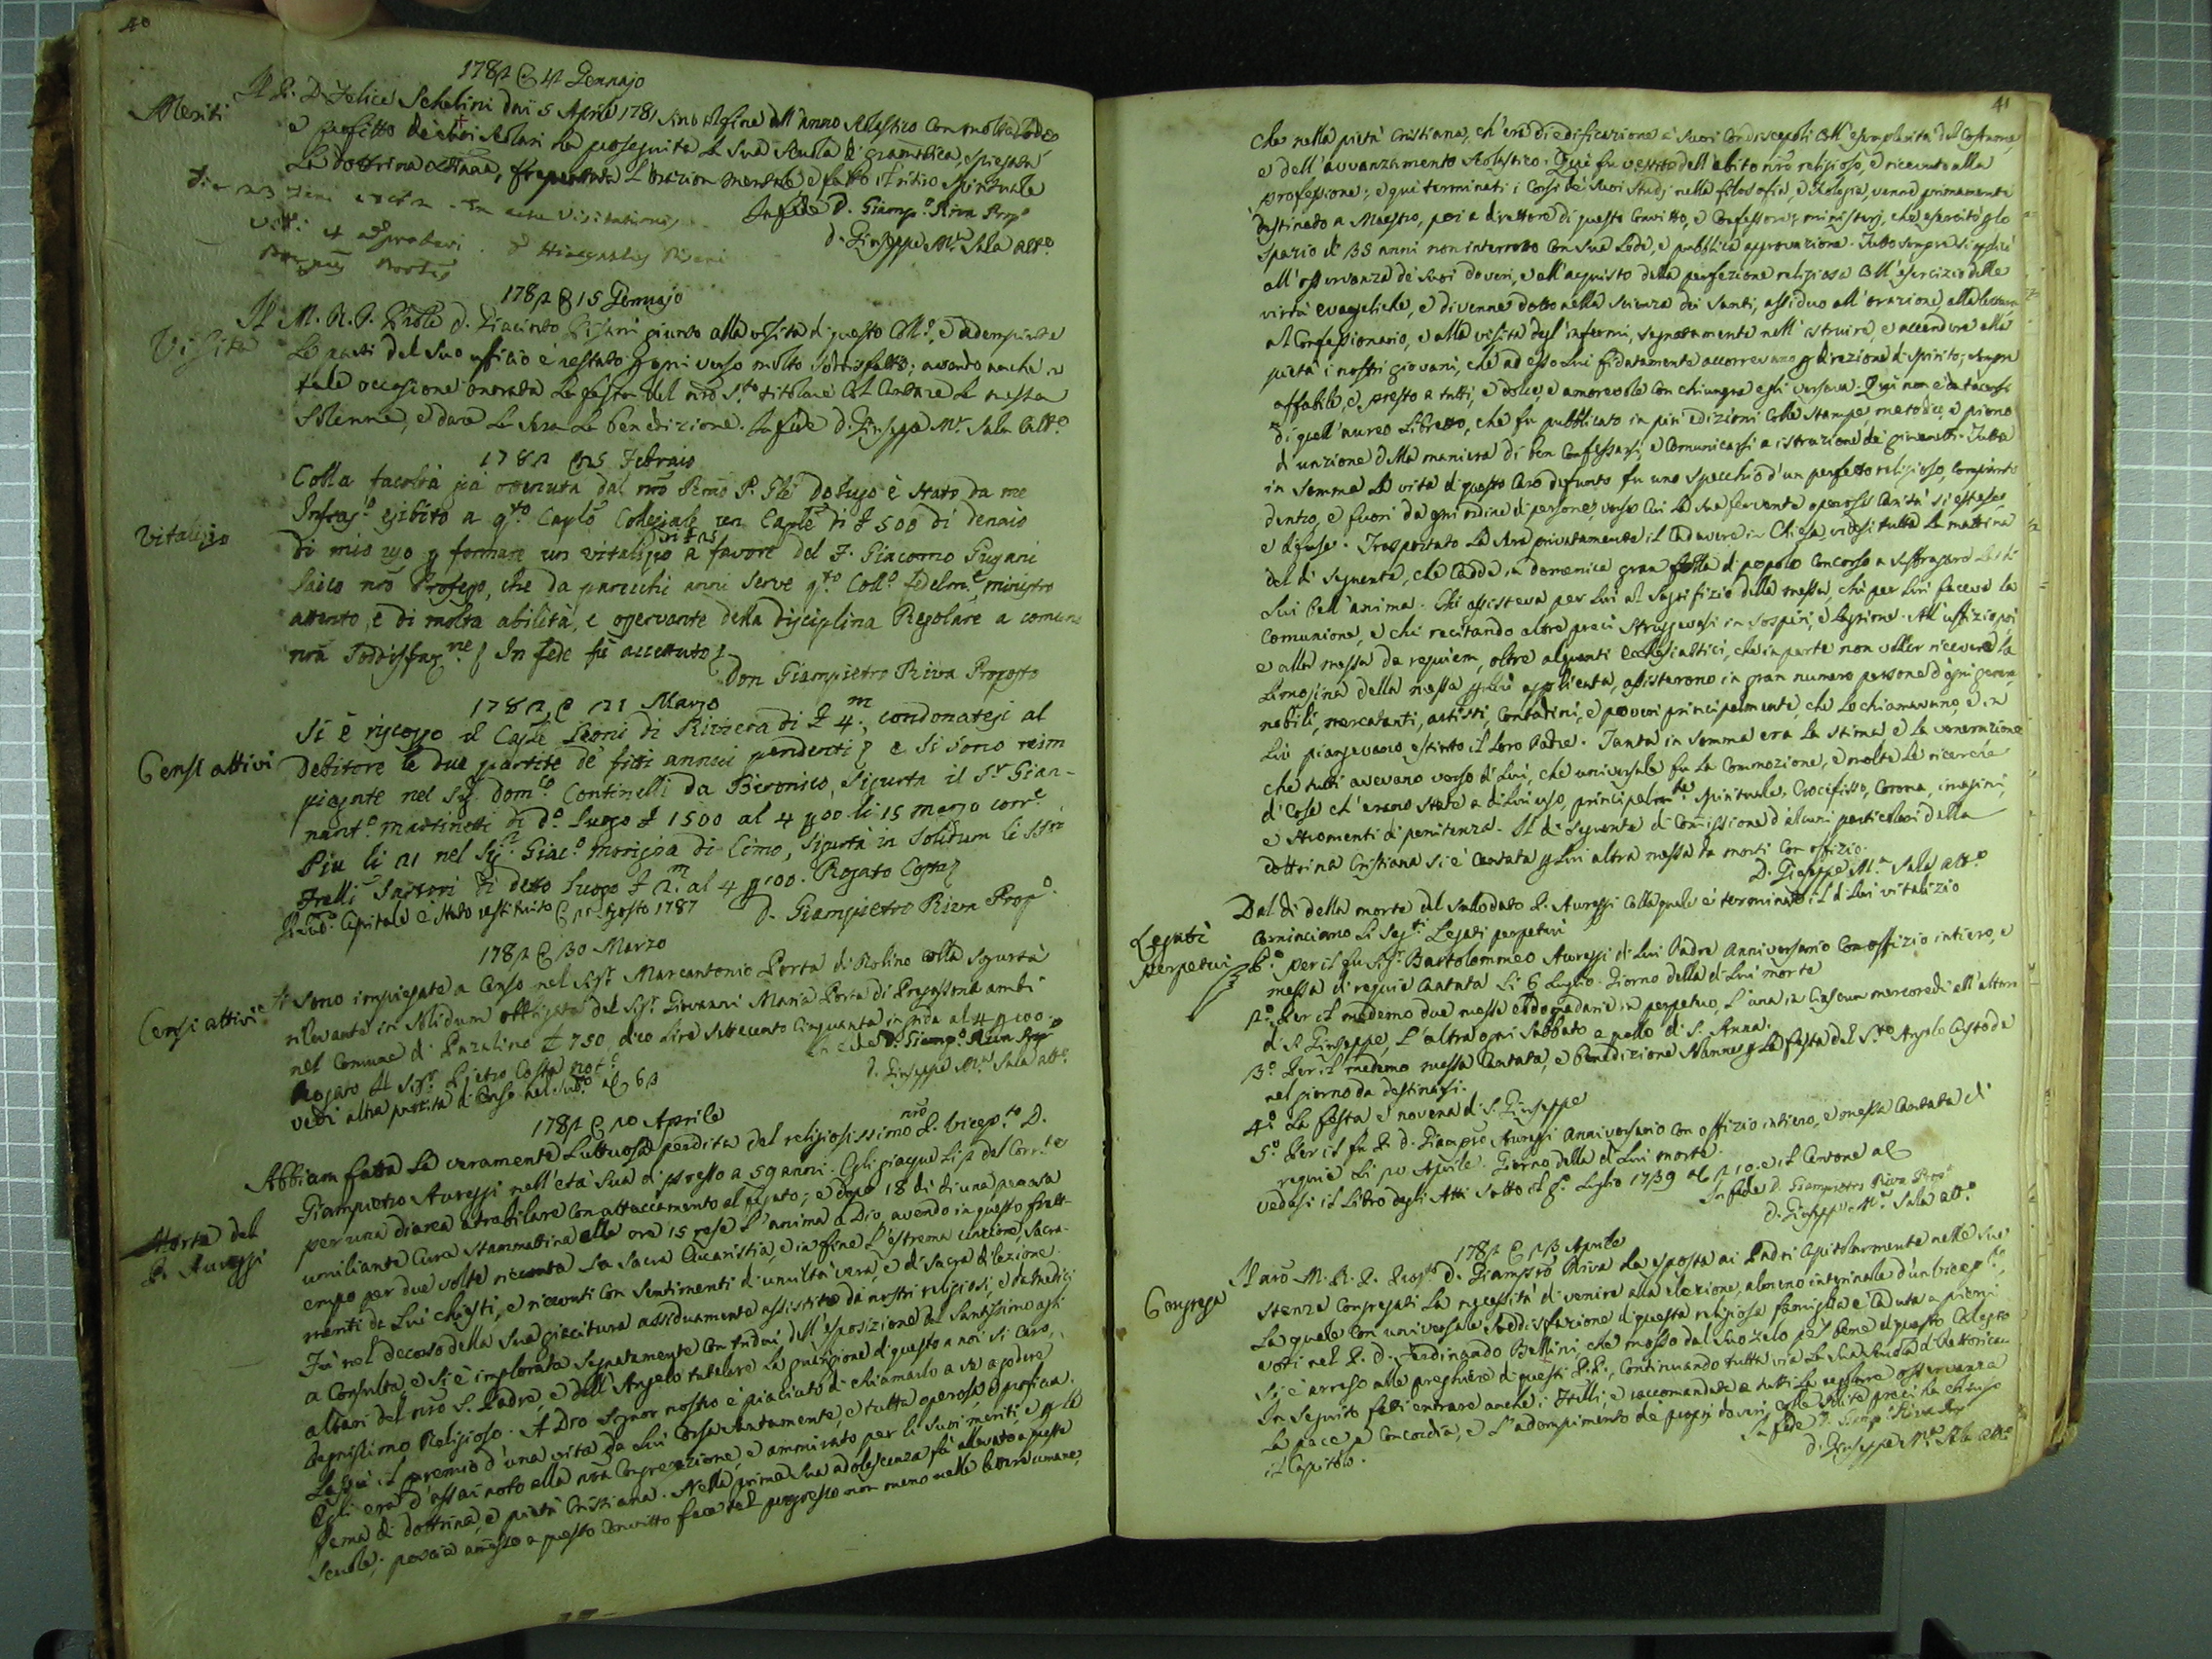 40
1782 4 Gennajo
Meriti
Il P. D. Felice Schelini dai 5 Aprile 1781 sino al fine dell'anno scolastico con molta lode
e profitto de' suoi scolari ha proseguita la sua scuola di gramatica, spiegata
la dottrina cristiana, frequentata l'orazion mentale e fatto il ritiro spirituale
In fede D. Giamp.o Riva Prep.o
D. Giuseppe M.a Sala att.o
1782 15 Gennajo
Visita
Il M. R. P. D. Giacinto giunto alla visita di questo Coll.o, ed adempiute
le parti del suo uffizio è restato ogni verso molto soddisfatto; avendo anche in
tale occasione onorata la festa del nro S.to titolare col cantare la messa
solenne, e dare la sera la benedizione. In fede D. Giuseppe M.a Sala Att.o
1782 25 Febraio
Vitalizio
Colla facoltà già ottenuta dal nro Rmo P. Gle Dolugo è stato da me
Infras.o esibito a q.to Caplo Collegiale un Caple di £ 500 di denaio
di mio uso p formare un vitalizio a favore del F. Giacomo Pugani
laico nro Professo, che da parecchi anni serve q.to Coll.o fedelm.e, ministro
attento, e di molta abilità, e osservante della disciplina Regolare a comune
nra soddisfaz.ne / In fede fù accettato /
Don Giampietro Riva Proposto
1782 21 Marzo
Censi attivi
Si è riscosso il Caple Leoni di Riviera di £ 4.m; condonatesi al
debitore le due partite de fitti annui pendenti / e si sono reim
piegate nel Sig. Dom.co Continelli da Bironico, sigurta il S.r Gian-
nant.o Martinetti di d.o luogo £ 1500 al 4 p 00 li 15 marzo corr.e
Piu li 21 nel Sig.r Giac.o Morigia di Cimo, sigurtà in solidum li SS.ri
Frelli Sartori di detto luogo £ 2.m al 4 p 100. Rogato Costa /
Capitale è stato restituito Agosto 1787
D. Giampietro Riva Prop.o
1782 30 Marzo
Censi attivi
Si sono impiegate a Censo nel Sig.r Marcantonio Porta di Rolino colla sigurtà
rilevante in solidum obbligata del Sig.r Giovanni Maria Porta di Pregassona ambi
nel Comune di Pazalino £ 750, dico Lire settecento cinquanta in grida al 4 p 100.
Rogato il Sig.r Pietro Costa not.o
In fede D. Giamp.o Riva Prop.o
vedi altra partita di Censo nel sud.o al 63
D. Giuseppe M.a Sala att.o
1782 20 Aprile
Morte del
P. Auressi
Abbiam fatta la veramente luttuosa perdita del religiosissimo nro P. Vicep.to D.
Giampietro Auressi nell'età sua di presso a 59 anni. Egli giaque li 2 del Corr.te
per una diarea atrabilare con attaccamento al fegato; e dopo 18 dì di una penosa
umiliante cura stammattina alle ore 15 rese l'anima a Dio, avendo in questo fratt-
empo per due volte ricevuta la sacra Eucaristia, e in fine l'estrema unzione, sacra-
menti da lui chiesti, e ricevuti con sentimenti di umiltà vera, e di sacra dilezione.
Fu nel decorso della sua giacitura assiduamente assistito da nostri religiosi, e da Medici
a Consulta, e si è implorata segnatamente con tridui dell'esposizione del Santissimo agli
altari del nro S. Padre, e dell'Angelo tutelare la guarigione di questo a noi sì caro,
degnissimo Religioso. A Dio Signor nostro è piaciuto di chiamarlo a sè a godere
lassù il premio d'una vita da lui corsa santamente, e tutta operosa, e proficua.
Egli era d'assai noto alla nra Congregazione, e ammirato per li suoi meriti, e p la
fama di dottrina, e pietà Cristiana. Nella prima sua adolescenza fu allevato a queste
scuole; poscia ammesso a questo Convitto fece tal progresso non meno nelle lettere umane,
41
che nella pietà Cristiana, ch'era di edificazione a' suoi Condiscepoli coll'esemplarità del costume,
e dell'avvanzamento scolastico. Quì fu vestito dell'abito nro religioso, e ricevuto alla
professione; e quì terminati i corsi de' suoi studj nella filosofia, e teologia, venne primamente
destinato a Maestro, poi a direttore di questo Convitto, e Confessore; ministerj, che esercitò p lo
spazio di 35 anni non interrotto con sua lode, e pubblica approvazione. Tutto sempre si applicò
all'osservanza de' suoi doveri, e all'acquisto della perfezione religiosa coll'esercizio delle
virtù evangeliche, e divenne dotto nella scienza dei Santi, assiduo all'orazione, alla lettura
al Confessionario, e alla visita degl'infermi, segnatamente nell'istruire, e accendere alla
pietà i nostri giovani, che ad esso lui fidatamente accorrevano p direzione di spirito; sempre
affabile, e presto a tutti, e dolce, e amorevole con chiunque egli versava. Quì non è da tacersi
di quell'aureo libretto, che fu pubblicato in più edizioni colle stampe metodico, e pieno
d'unzione della maniera di ben Confessarsi, e Comunicarsi a istruzione de' giovanetti. Tutta
in somma la vita di questo caro defunto fu uno specchio d'un perfetto religioso, compianto
dentro, e fuori da ogni ordine di persone, verso cui la sua fervente operosa carità si estese,
e difuse. Trasportato la sera privatamente il cadavere in Chiesa, videsi tutta la mattina
del dì seguente, che cadde in domenica gran folla di popolo concorso a suffragare la di
lui bell'anima. Chi assisteva per lui al Sagrifizio della messa, chi per lui faceva la
Comunione, e chi recitando altre preci struggevasi in sospiri, e lagrime. All'uffizio poi,
e alla messa da requiem, oltre alquanti ecclesiastici, che in parte non voller ricevere la
limosina della messa p lui applicata, assisterono in gran numero persone d'ogni genere,
nobili, mercatanti, artisti, Contadini, e poveri principalmente, che lo chiamavano, e in
lui piangevano estinto il loro Padre. Tanta in somma era la stima e la venerazione
che tutti avevano verso di lui, che universale fu la Commozione, e molte le ricerche
di cose ch'erano state a di lui uso, principalm.te spirituale, Crocefisso, Corona, imagini,
e stromenti di penitenza. Il dì seguente di Comissione d'alcuni particolari della
dottrina Cristiana si è Cantata p lui altra messa da morti con offizio.
D. Giuseppe M.a Sala att.o
Legati
perpetui
Dal dì della morte del sullodato P. Auressi colla quale è terminato il di lui vitalizio
cominciano li seg.ti Legati perpetui
1.o per il fu Sig.r Bartolommeo Auressi di lui Padre anniversario con offizio intiero, e
messa di requie cantata li 6 Luglio. Giorno della di lui morte
2.o Per il medemo due messe eddomadarie in perpetuo, l'una in ciascun mercoredì all'altare
di S. Giuseppe, l'altra ogni sabbato a quello di S. Anna.
3.o Per il medemo messa cantata, e benedizione solenne p la festa del S.to Angelo Custode
nel giorno da destinarsi.
4.o La festa e novena di S. Giuseppe
5.o Per il fu P. D. Giampro Auressi anniversario con offizio intiero, e messa cantata di
requie li 20 Aprile. Giorno della di lui morte.
vedasi il libro degli Atti sotto il p.o Luglio 1739
In fede D. Giampietro Riva Prop.o
D. Giuseppe M.a Sala att.o
1782 23 Aprile
Congrega
Il nro M. R. P. Prop.to D. Giampro Riva ha esposta ai Padri capitolarmente nelle sue
stanze Congregati la necessità di venire alla elezione, almeno interinale d'un vicep.to,
la quale con universale soddisfazione di questa religiosa famiglia è caduta a pieni
voti nel P. D. Ferdinando Bellini, che mosso dal suo zelo pel bene di questo Collegio
si è arreso alle preghiere di questi P.P., Continuando tutta via la sua scuola di Rettorica.
In seguito fatti entrare anche i Frelli, e raccomandata a tutti la regolare osservanza
la pace, e Concordia, e l'adempimento de' proprj doveri, colle solite preci ha chiuso
il Capitolo.
In fede D. Giamp.o Riva Prop.o
D. Giuseppe M.a Sala att.o